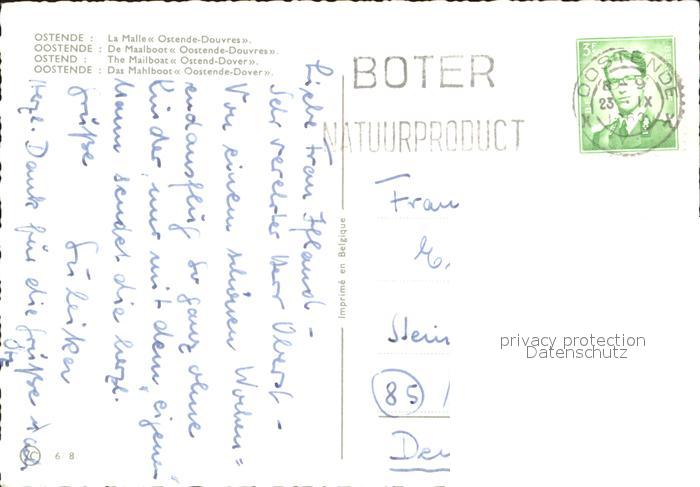 OSTENDE : La Malle « Ostende-Douvres ».
OOSTENDE : De Maalboot « Oostende-Douvres ».
OSTEND : The Mailboat « Ostend-Dover ».
OOSTENDE : Das Mahlboot « Oostende-Dover ».
Liebe Frau
Sehr verehrter Herr Oberst -
Von einem schönen Wochen=
endausflug so ganz ohne
Kinder, nur mit dem eigenen
Mann sendet die herzl.
Grüße
Herzl. Dank für die Grüße
BOTER
NATUURPRODUCT
OOSTENDE
23 IX
3F
Imprimé en Belgique
Frau
E.
Stein
85
privacy protection
Datenschutz
6 8